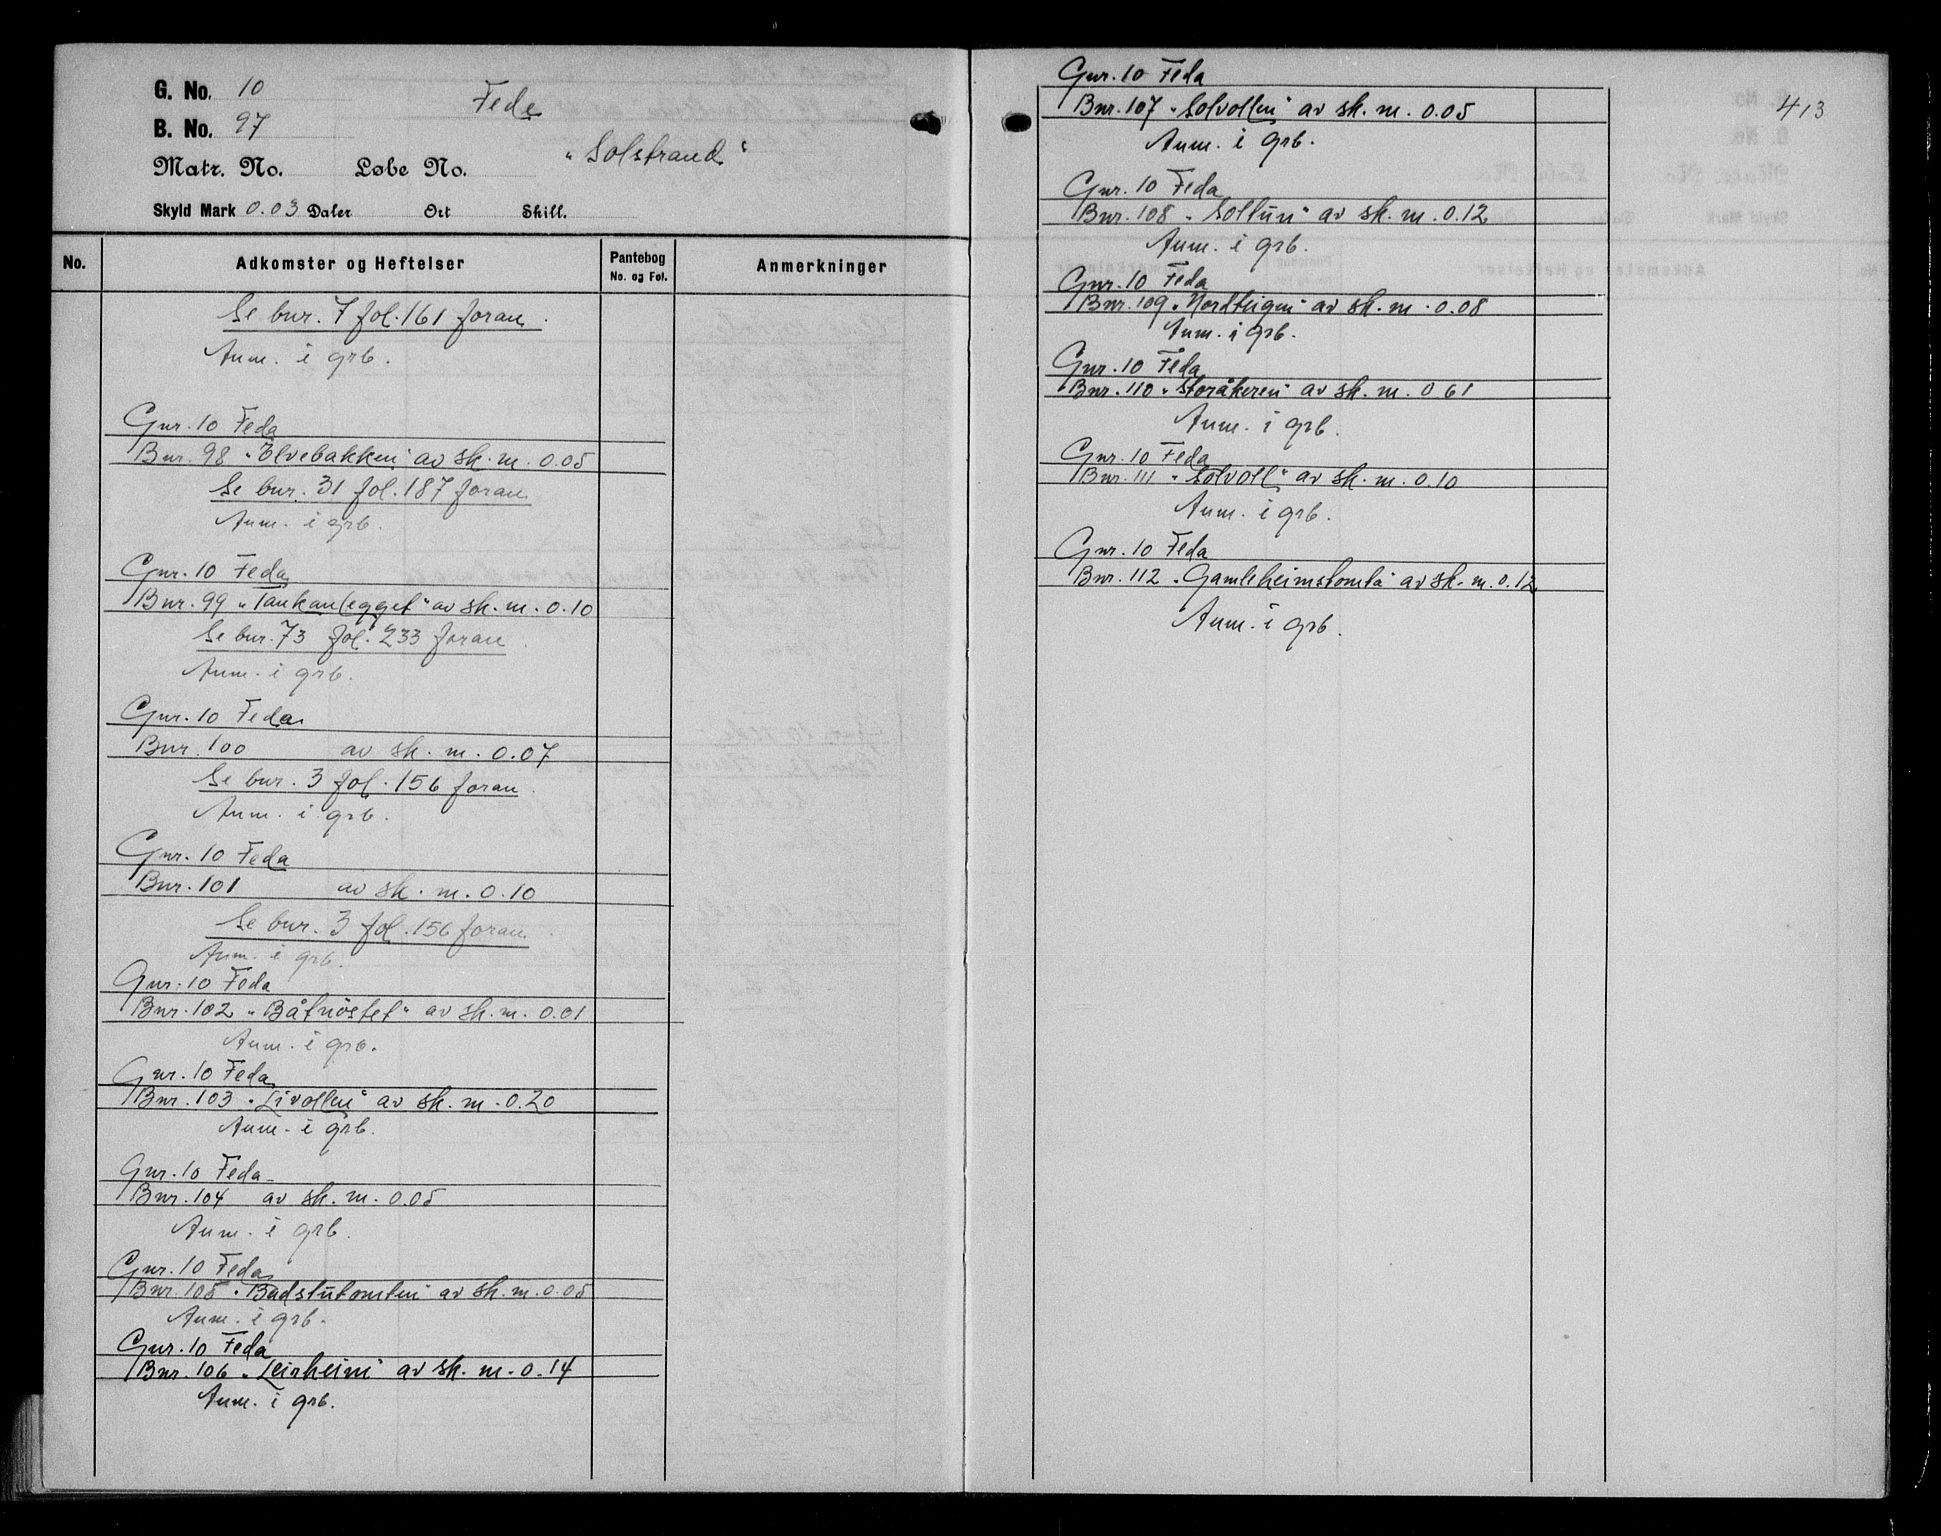 G. No. 10
Feda
B. No. 97
„Solstrand"
Matr. No. Løbe No.
Skyld Mark 0.03 Daler Ort Skill.
No. Adkomster og Heftelser Pantebog No. og Fol. Anmerkninger
Se bnr. 7 fol. 161 foran.
Anm. i grb.
Gnr. 10 Feda
Bnr. 98 „Elvebakken" av sk. m. 0.05
Se bnr. 31 fol. 187 foran.
Anm. i grb.
Gnr. 10 Feda
Bnr. 99 „Tankanlegget" av sk. m. 0.10
Se bnr. 73 fol. 233 foran.
Anm. i grb.
Gnr. 10 Feda
Bnr. 100 av sk. m. 0.07
Se bnr. 3 fol. 156 foran.
Anm. i grb.
Gnr. 10 Feda
Bnr. 101 av sk. m. 0.10
Se bnr. 3 fol. 156 foran.
Anm. i grb.
Gnr. 10 Feda
Bnr. 102 „Båtnöstet" av sk. m. 0.01
Anm. i grb.
Gnr. 10 Feda
Bnr. 103 „Livollen" av sk. m. 0.20
Anm. i grb.
Gnr. 10 Feda
Bnr. 104 av sk. m. 0.05
Anm. i grb.
Gnr. 10 Feda
Bnr. 105 „Badstutomten" av sk. m. 0.05
Anm. i grb.
Gnr. 10 Feda
Bnr. 106 „Leirheim" av sk. m. 0.14
Anm. i grb.
413
Gnr. 10 Feda
Bnr. 107 „Solvollen" av sk. m. 0.05
Anm. i grb.
Gnr. 10 Feda
Bnr. 108 „Soltun" av sk. m. 0.12
Anm. i grb.
Gnr. 10 Feda
Bnr. 109 „Nordteigen" av sk. m. 0.08
Anm. i grb.
Gnr. 10 Feda
Bnr. 110 „Storåkeren" av sk. m. 0 61
Anm. i grb.
Gnr. 10 Feda
Bnr. 111 „Solvoll" av sk. m. 0.10
Anm. i grb.
Gnr. 10 Feda
Bnr. 112 „Gamleheimstomta" av sk. m. 0.12
Anm. i grb.